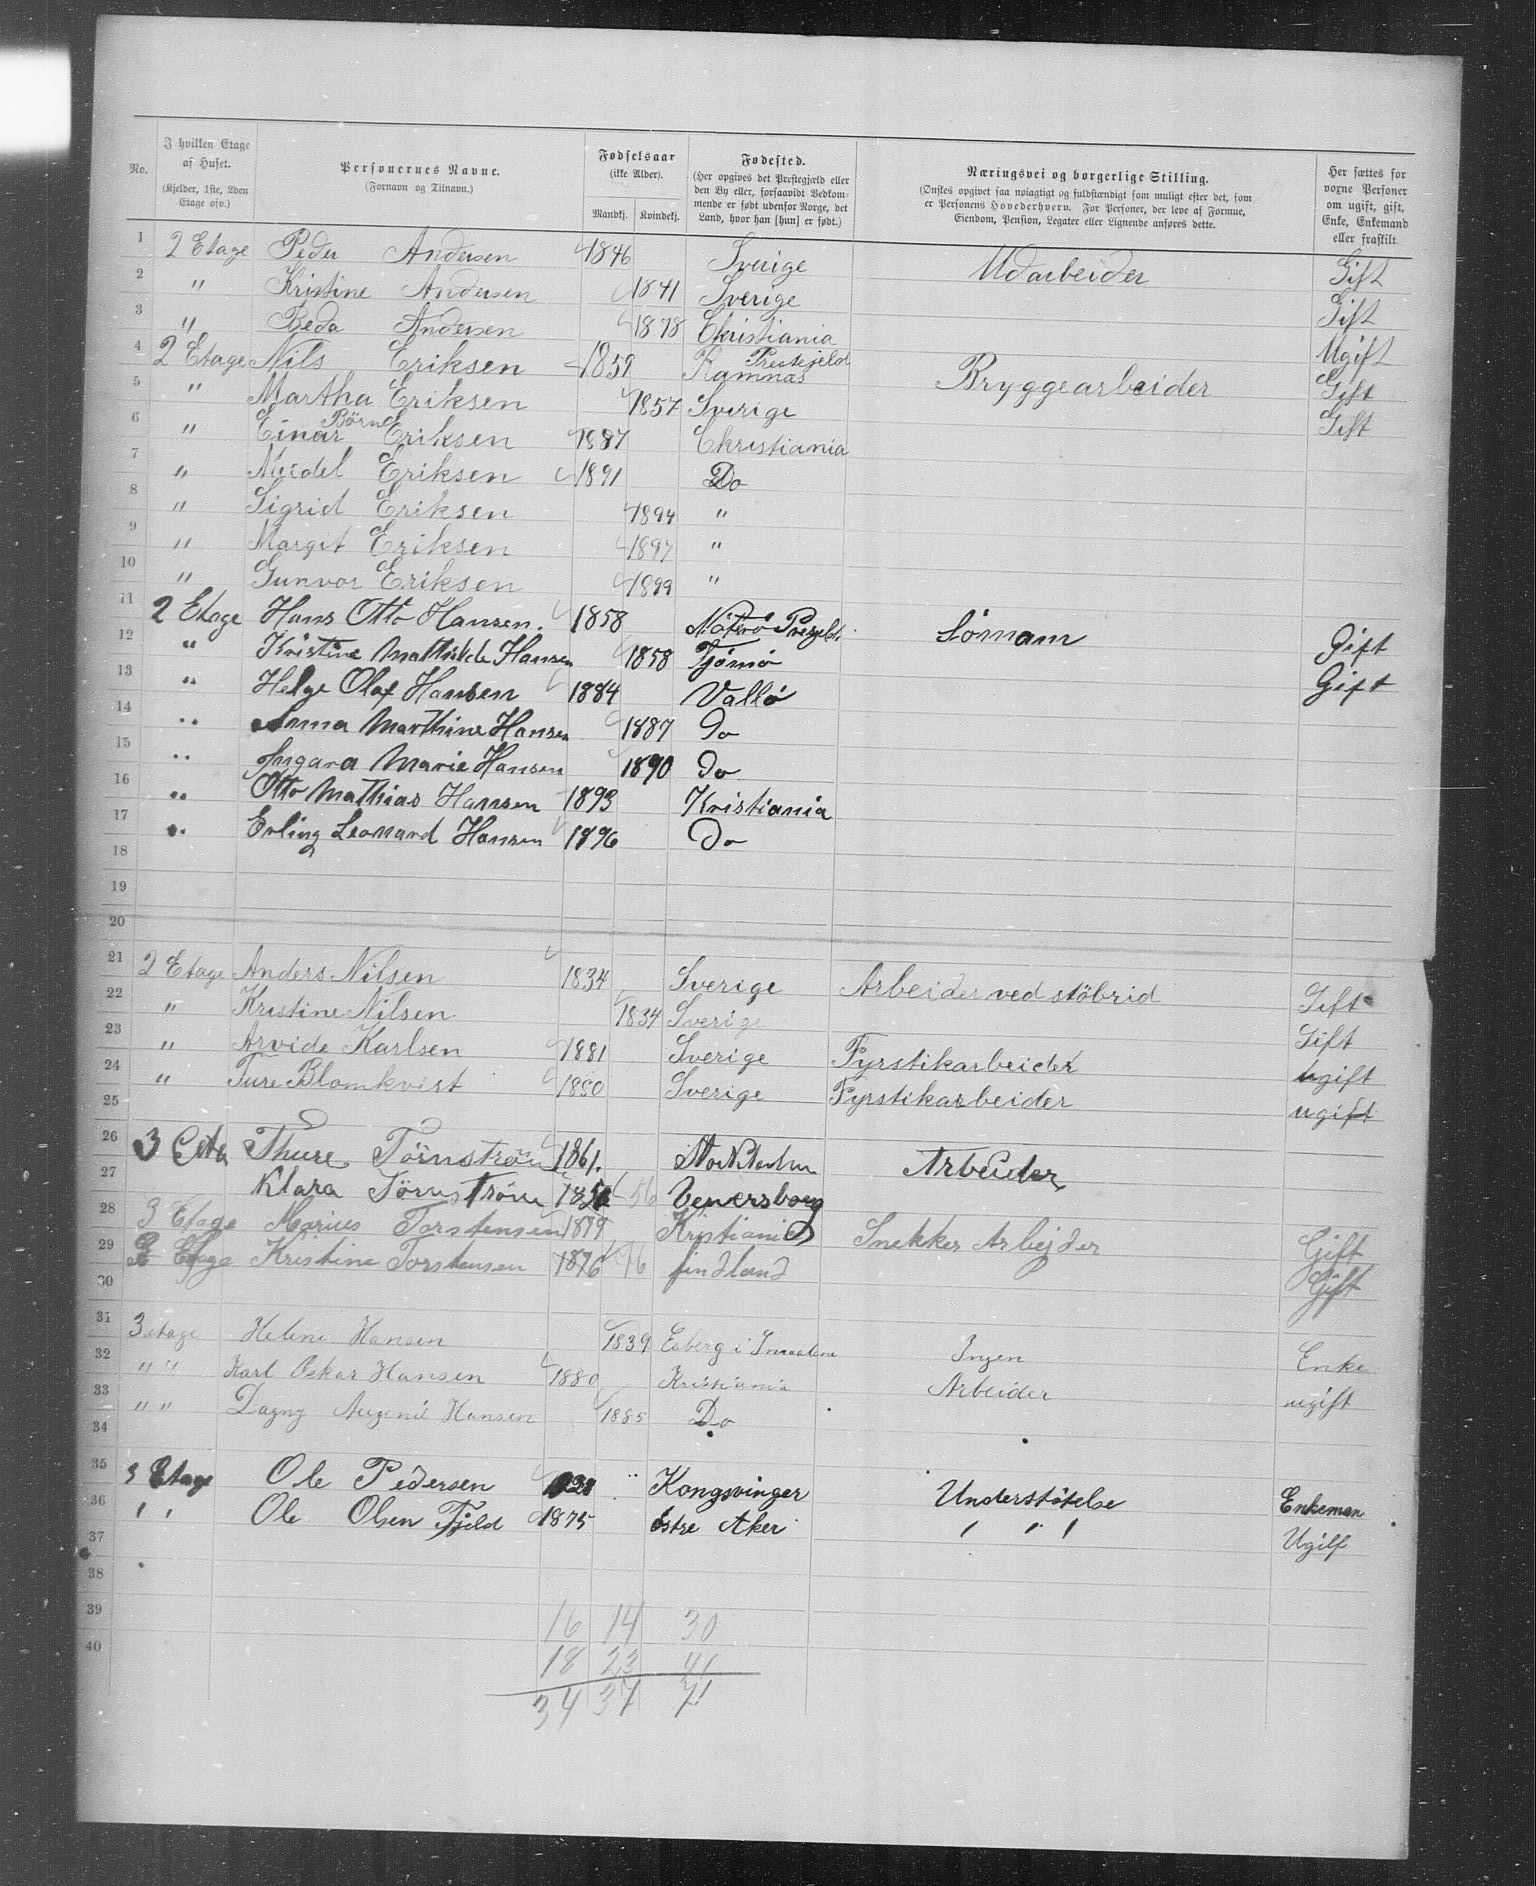 No. I hvilken Etage af Huset. (Kjelder, 1ste, 2den Etage osv.) Personernes Navne. (Fornavn og Tilnavn.) Fødselsaar (ikke Alder). Mandkj. Kvindekj. Fødested. (Her opgives det Prestegjæld eller den By eller, forsaavidt Vedkommende er født udenfor Norge, det Land, hvor han [hun] er født.) Næringsvei og borgerlige Stilling. (Ønskes opgivet saa nøiagtigt og fuldstændigt som muligt efter det, som er Personens Hovederhverv. For Personer, der leve af Formue, Eiendom, Pension, Legater eller Lignende anføres dette. Her sættes for vorne Personer om ugift, gift, Enke, Enkemand eller fraskilt.
1 2 Etage Peder Andersen 1846 Sverige Udarbeider Gift
2 " Kristine Andersen 1841 Sverige Gift
3 " Beda Andersen 1878 Christiania Ugift
4 2 Etage Nils Eriksen 1859 Ramnas Prestejeld Bryggearbeider Gift
5 " Martha Eriksen 1857 Sverige Gift
6 " Börn Einar Eriksen 1887 Christiania
7 " Meidel Eriksen 1891 Do
8 " Sigrid Eriksen 1894 "
9 " Margit Eriksen 1897 "
10 " Gunvor Eriksen 1899 "
11 2 Etage Hans Otto Hansen. 1858 Nöterö Presjeld. Sömam Gift
12 " Kristine Mathilde Hansen 1858 Tjömö Gift
13 " Helge Olaf Hansen 1884 Vallö
14 " Anna Marthine Hansen 1887 Do
15 " Ingara Marie Hansen 1890 Do
16 " Otto Mathias Hansen 1893 Kristiania
17 " Erling Leonard Hansen 1896 Do
18
19
20
21 2 Etage Anders Nilsen 1834 Sverige Arbeider ved stöbrid Gift
22 " Kristine Nilsen 1834 Sverige Gift
23 " Arvide Karlsen 1881 Sverige Fyrstikarbeider ugift
24 " Ture Blomkvist 1880 Sverige Fyrstikarbeider ugift
25
26 3 Eta Thure Törnström 1861. Stockholm Arbeider
27 Klara Törnström 1856 56 Venersborg
28 3 Etage Marius Torstensen 1879 Kristiania Snekker Arbejder Gift
29 3 Etage Kristine Torstensen 1876 76 findland Gift
30
31 3 etage Helene Hansen 1839 Esberg i Ingen Enke
32 " " Karl Oskar Hansen 1880 Kristiania Arbeider ugift
33 " " Dagny Augenie Hansen 1885 Do
34
35 3 Etage Ole Pedersen Kongsvinger Understötelse Enkeman
36 " " Ole Olsen Fjeld 1875 östre Aker " " " Ugift
37
38
39 16 14 30
40 18 23 41
34 37 71